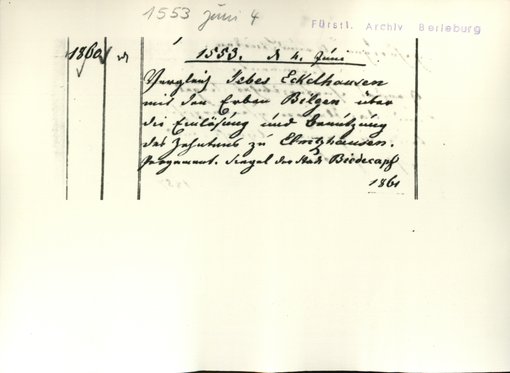 1553 Juni 4
Fürstl. Archiv Berleburg
1860.
1553. d 4. Juni
Vergleich Ibes Eckelhausen
mit den Erben Bilgen über
die Einlösung und Benützung
des Zehntens zu Elmshausen.
Pergament. Siegel der Stadt Biedecapf
1861